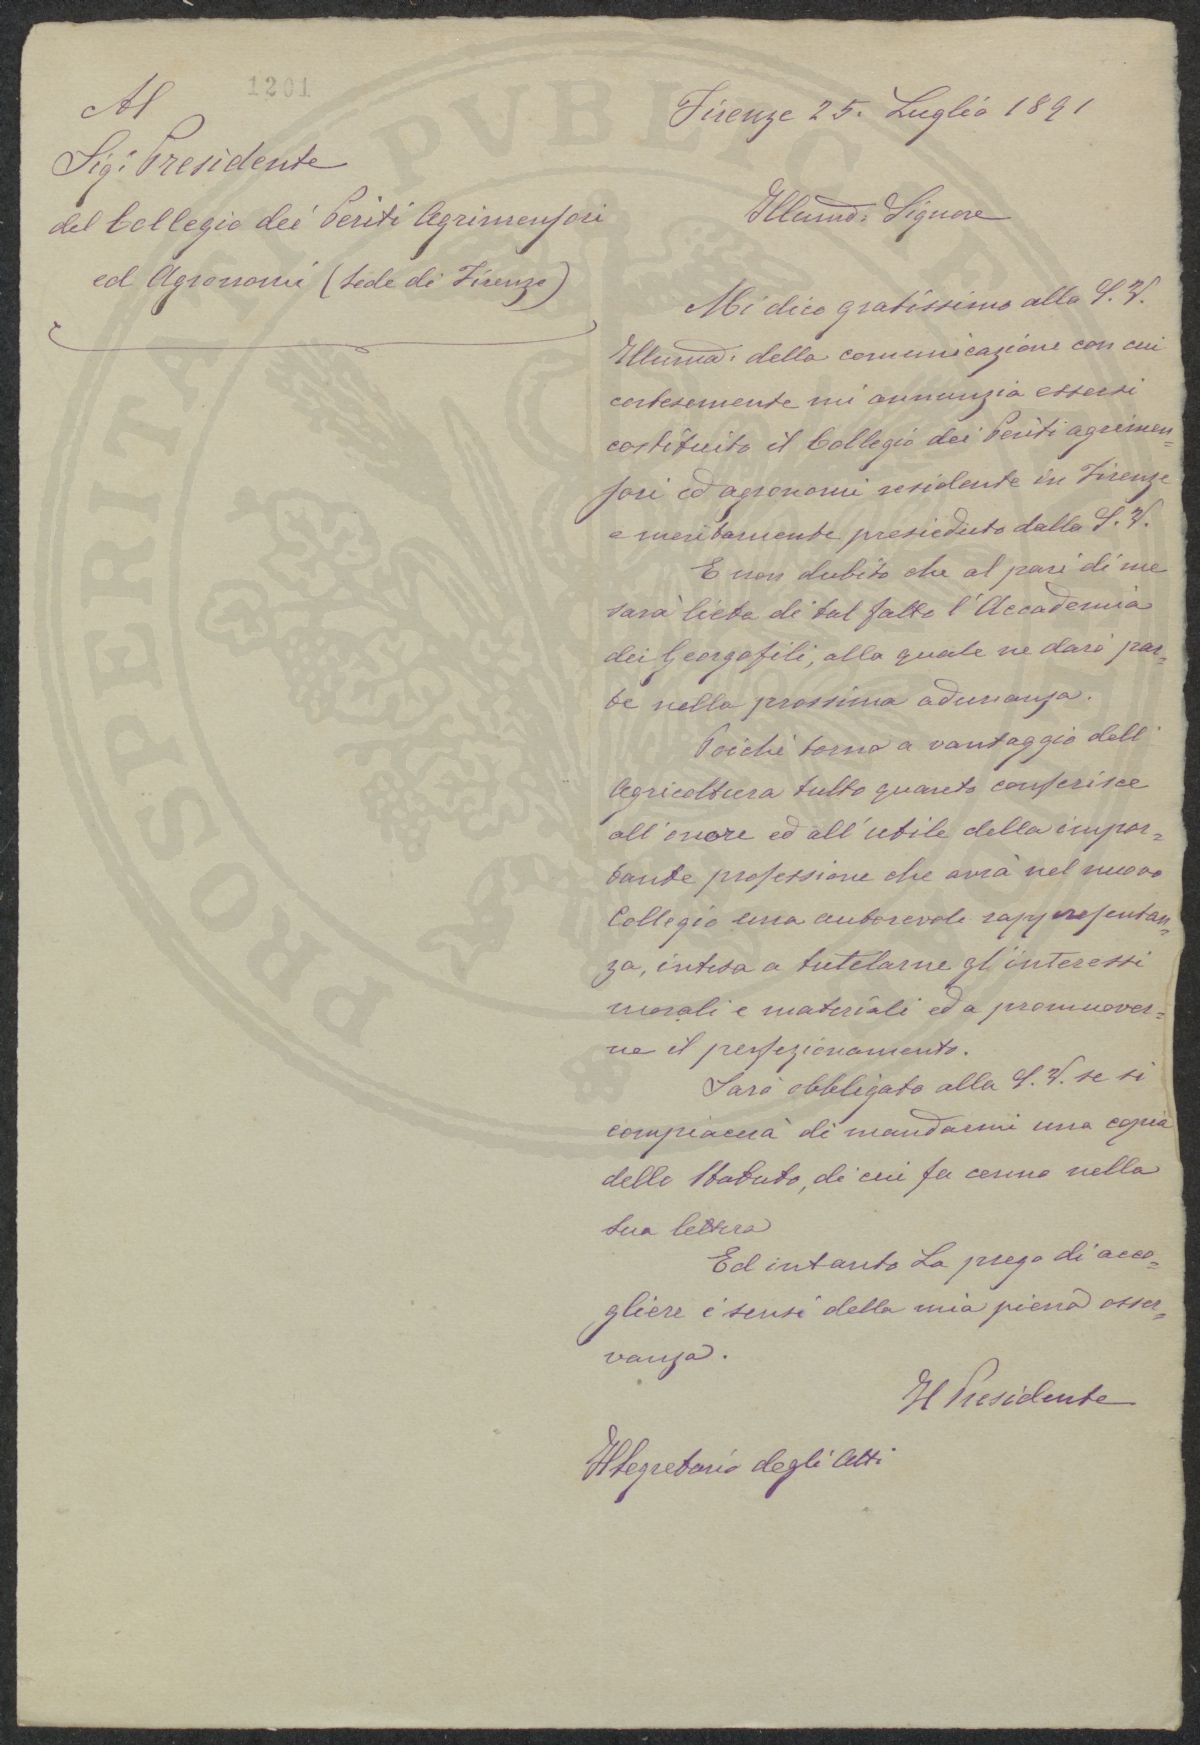 1201
Al
Sigr Presidente
del Collegio dei Periti Agrimensori
ed Agronomi (sede di Firenze)
Firenze 25. Luglio 1891
Illumo: Signore
Mi dico gratissimo alla S.V.
Illuma: della comunicazione con cui
cortesemente mi annunzia essersi
costituito il Collegio dei Periti agrimen=
sori ed agronomi residente in Firenze
e meritamente presieduto dalla S.V.
E non dubito che al pari di me
sarà lieta di tal fatto l'Accademia
dei Georgofili, alla quale ne darò par=
te nella prossima adunanza.
Poichè torna a vantaggio dell'
Agricoltura tutto quanto conferisce
all'onore ed all'utile della impor=
tante professione che avrà nel nuovo
Collegio una autorevole rappresentan=
za, intesa a tutelarne gl'interessi
morali e materiali ed a promuover=
ne il perfezionamento.
Sarò obbligato alla S.V. se si
compiacerà di mandarmi una copia
dello Statuto, di cui fa cenno nella
sua lettera
Ed intanto La prego di acco=
gliere i sensi della mia piena osser=
vanza.
Il Presidente
Il Segretario degli Atti
PROSPERITATI PVBLICAE